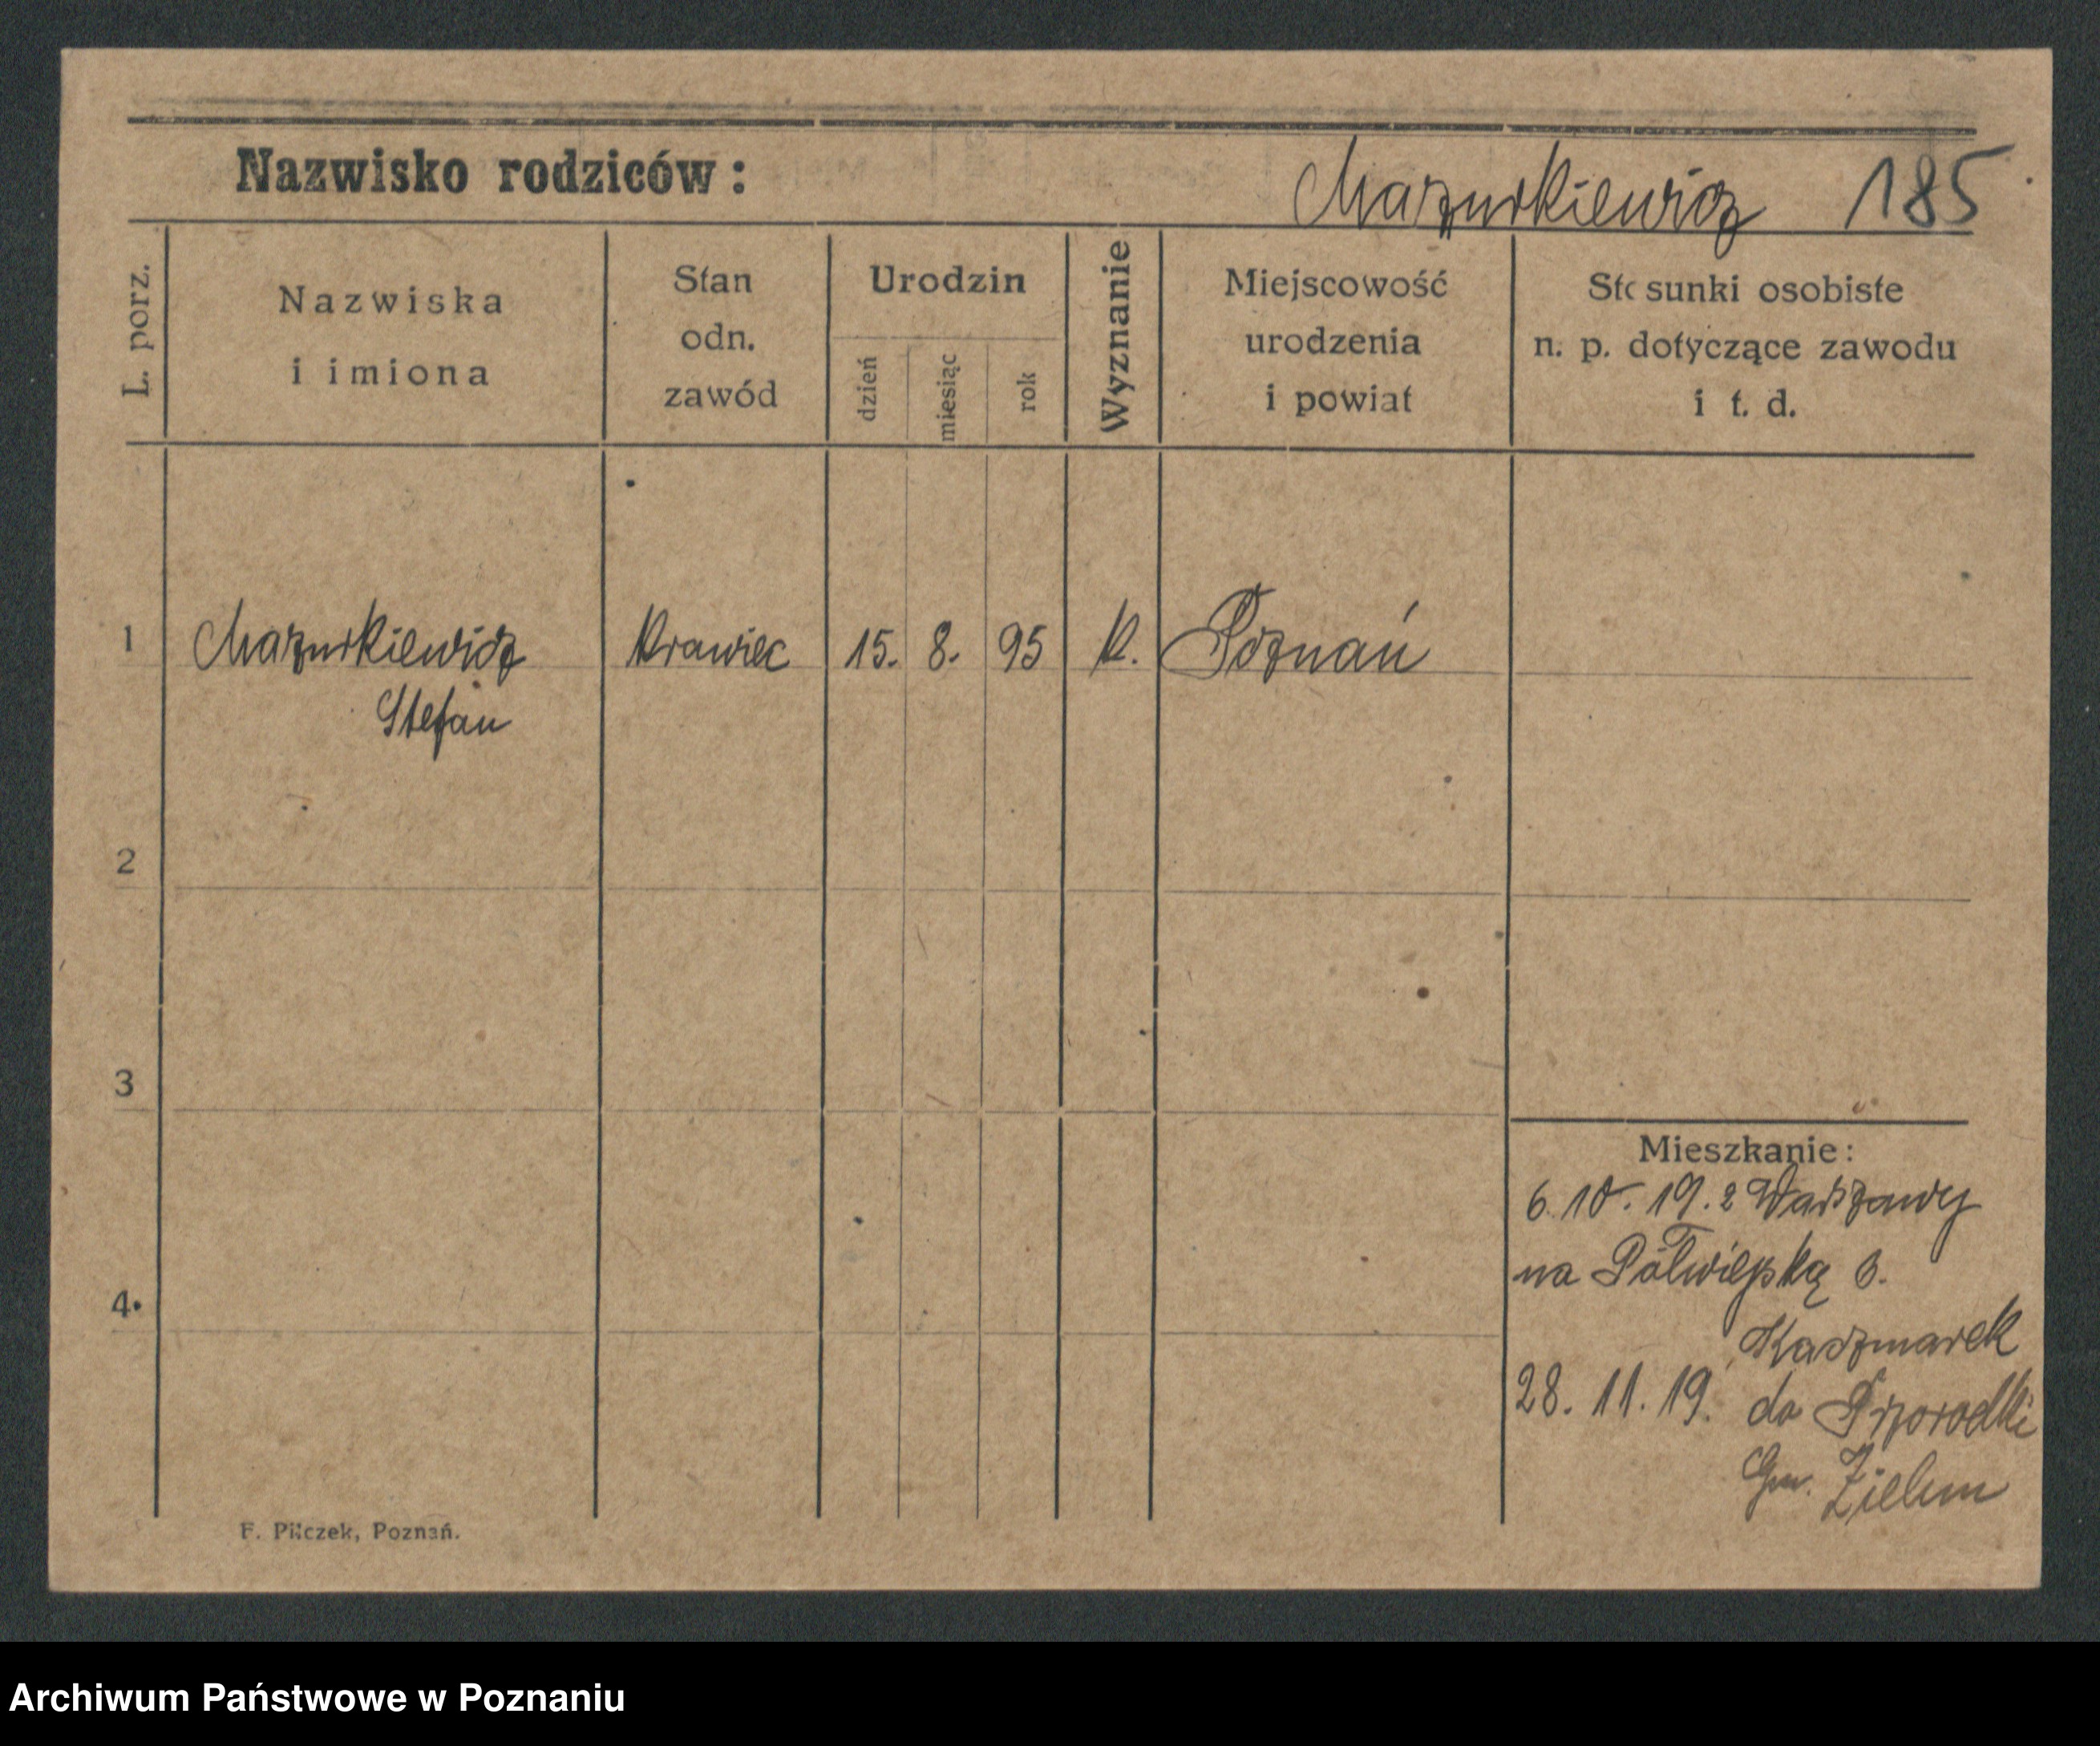 Nazwisko rodziców: Mazurkiewicz 185
L. porz.
Nazwiska
i imiona
Stan
odn.
zawód
Urodzin
dzień
miesiąc
rok
Wyznanie
Miejscowość
urodzenia
i powiat
Stosunki osobiste
n. p. dotyczące zawodu
i t. d.
1 Mazurkiewicz Krawiec 15. 8. 95 K. Poznań
Stefan
2
3
4.
Mieszkanie:
6.10.19. z Warszawy
na Półwiejską 6.
Kaczmarek
28. 11. 19. do
Gm.
F. Pilczek, Poznań.
Archiwum Państwowe w Poznaniu